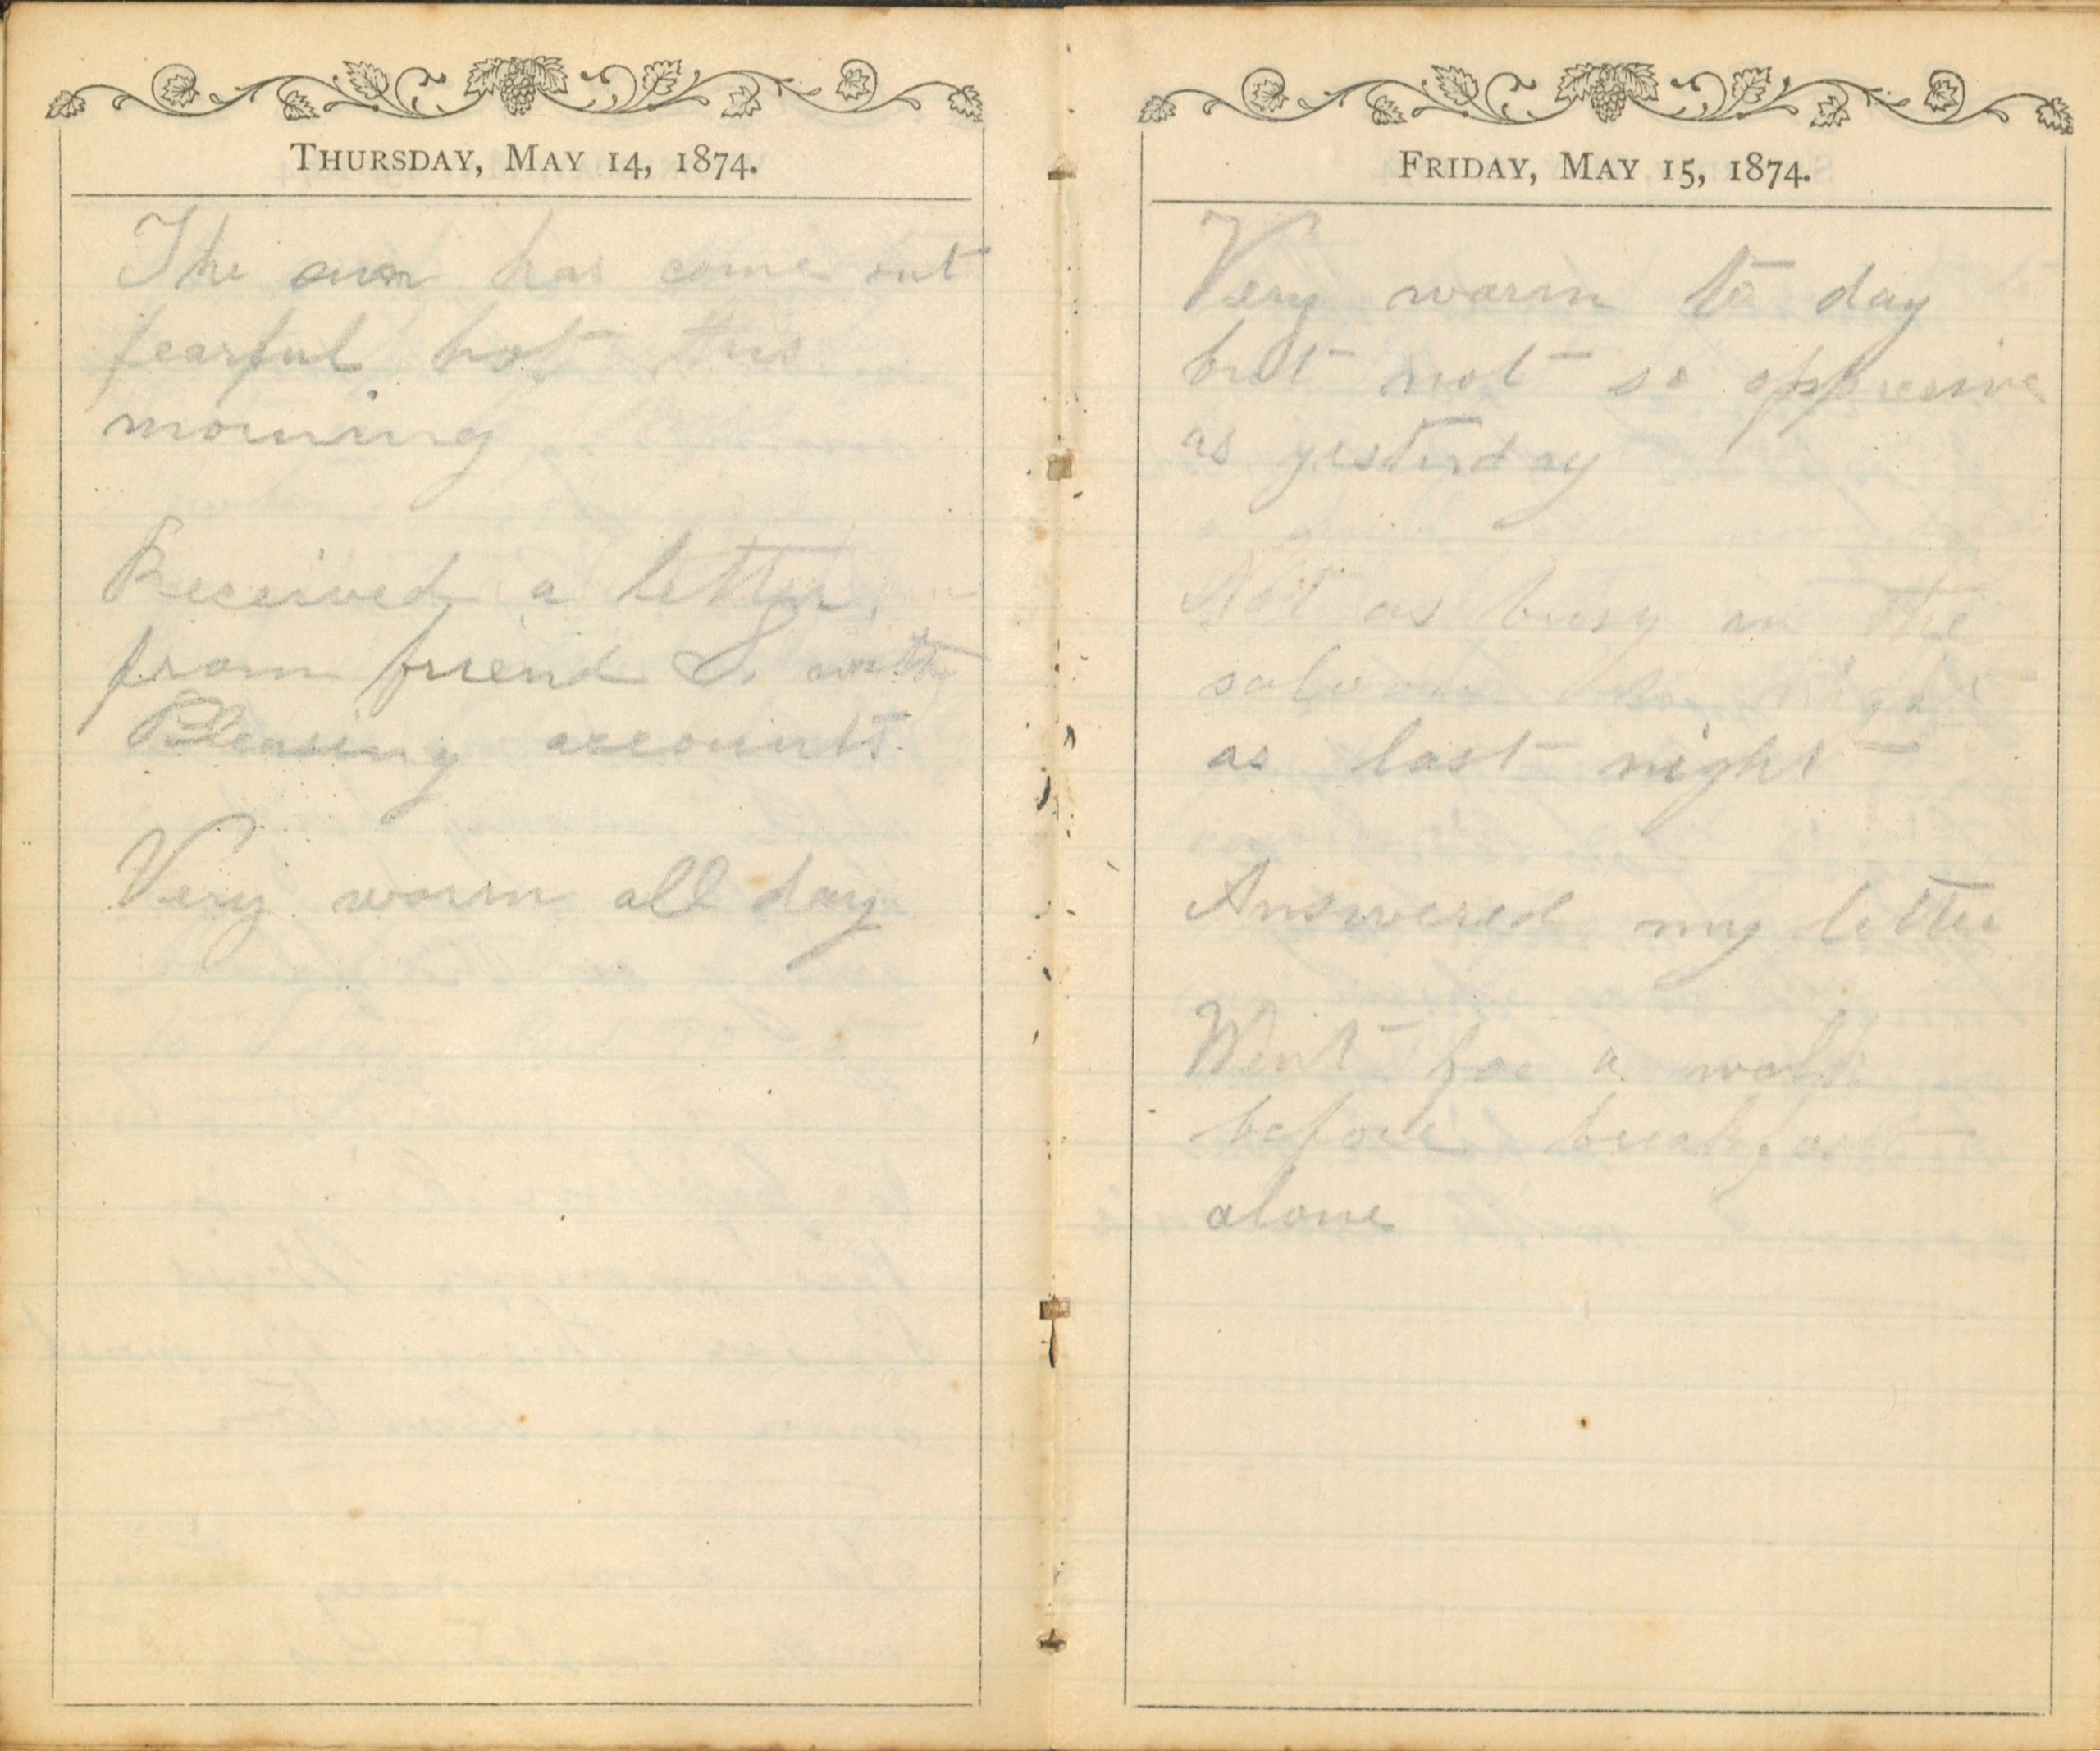 THURSDAY, MAY 14, 1874.
The sun has come out
fearful hot this
morning
Received a letter
from friend with
Pleasing accounts.
Very warm all day
FRIDAY, MAY 15, 1874.
Very warm to day
but not so oppresive
as yesterday
Not as busy in the
saloon night
as last night
Answered my letter
Went for a walk
before breakfast
alone